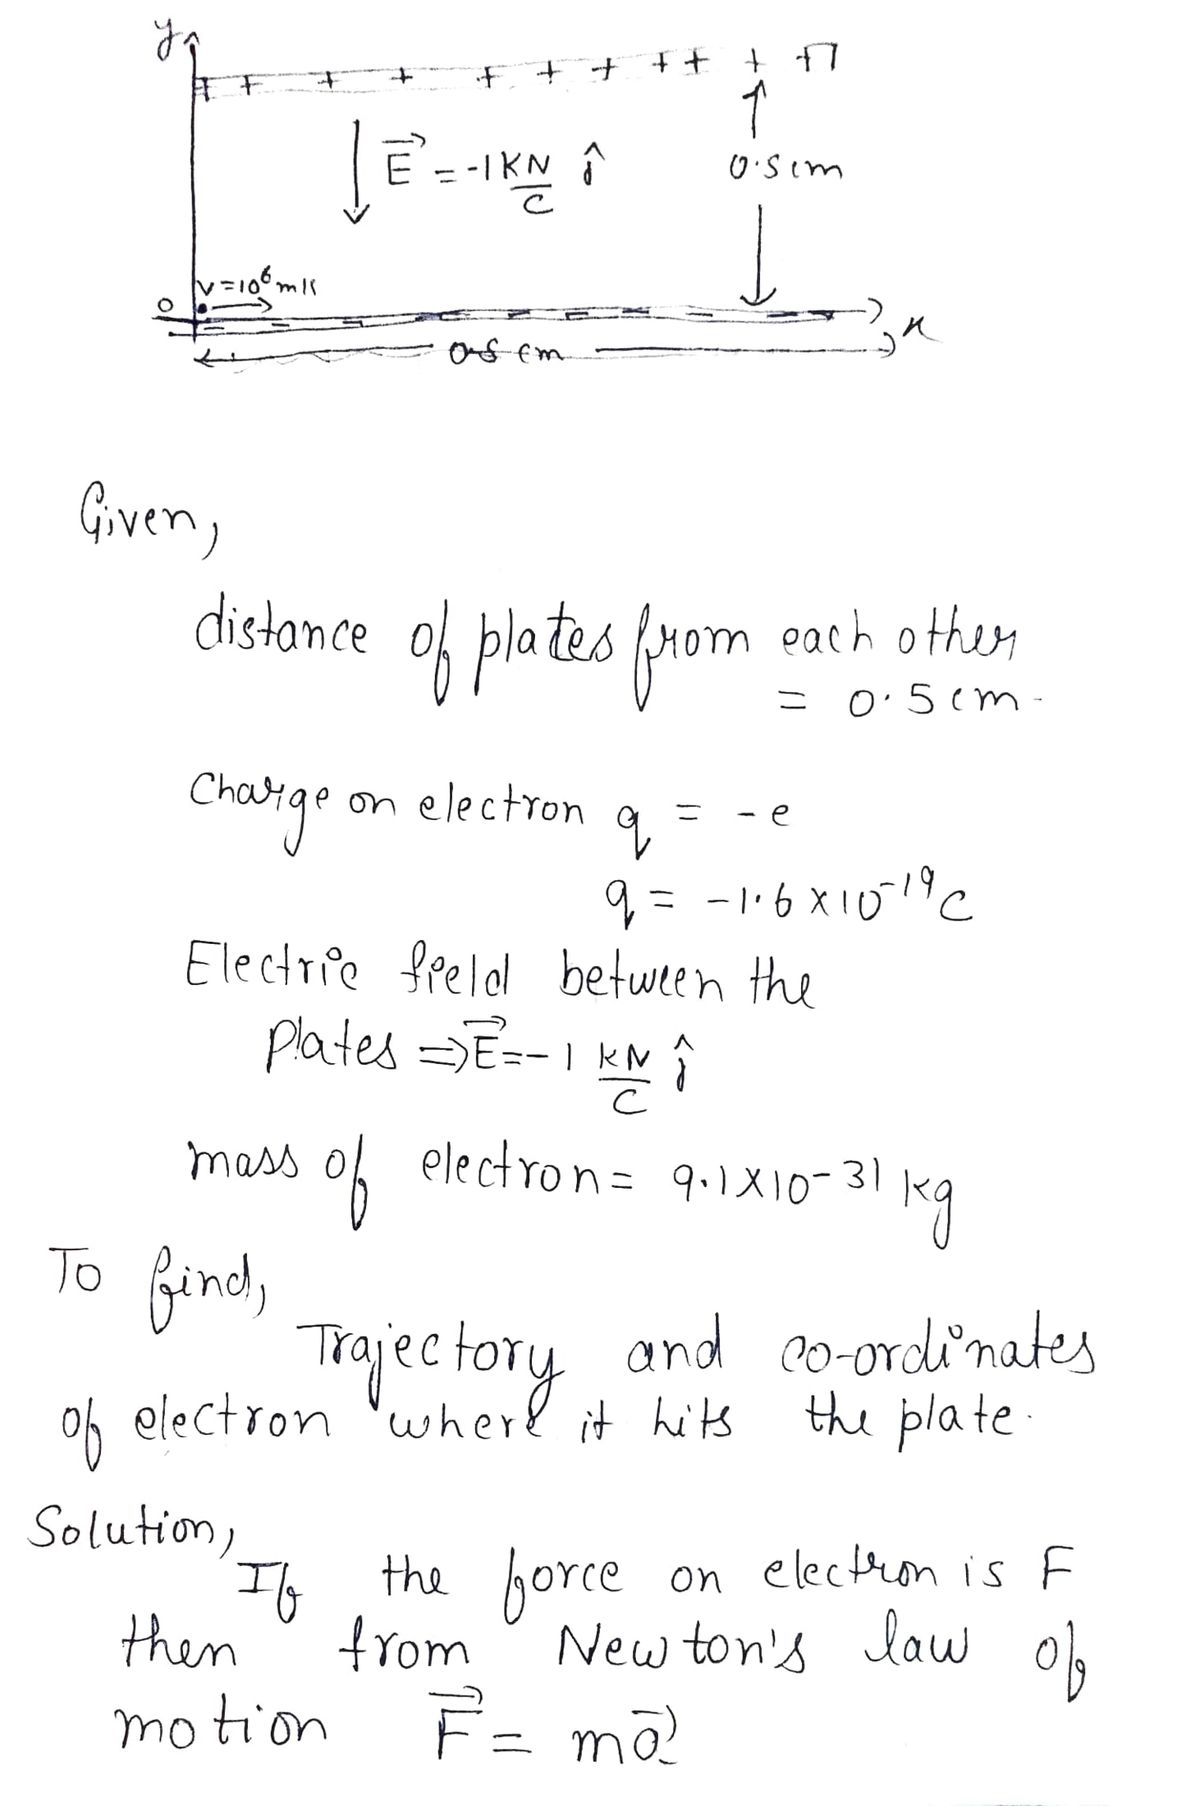 y
+ + + + + + + + + + +
E⃗ = -1 KN/C ĵ
0.5 cm
v = 10⁶ m/s
O
x
0.5 cm
Given,
distance of plates from each other
= 0.5 cm.
Charge on electron q = - e
q = - 1.6 x 10⁻¹⁹ C
Electric field between the
Plates ⇒ E⃗ = - 1 kN/C ĵ
mass of electron = 9.1 X 10⁻³¹ kg
To find,
Trajectory and co-ordinates
of electron where it hits the plate.
Solution,
If the force on electron is F
then from Newton's law of
motion F⃗ = ma⃗